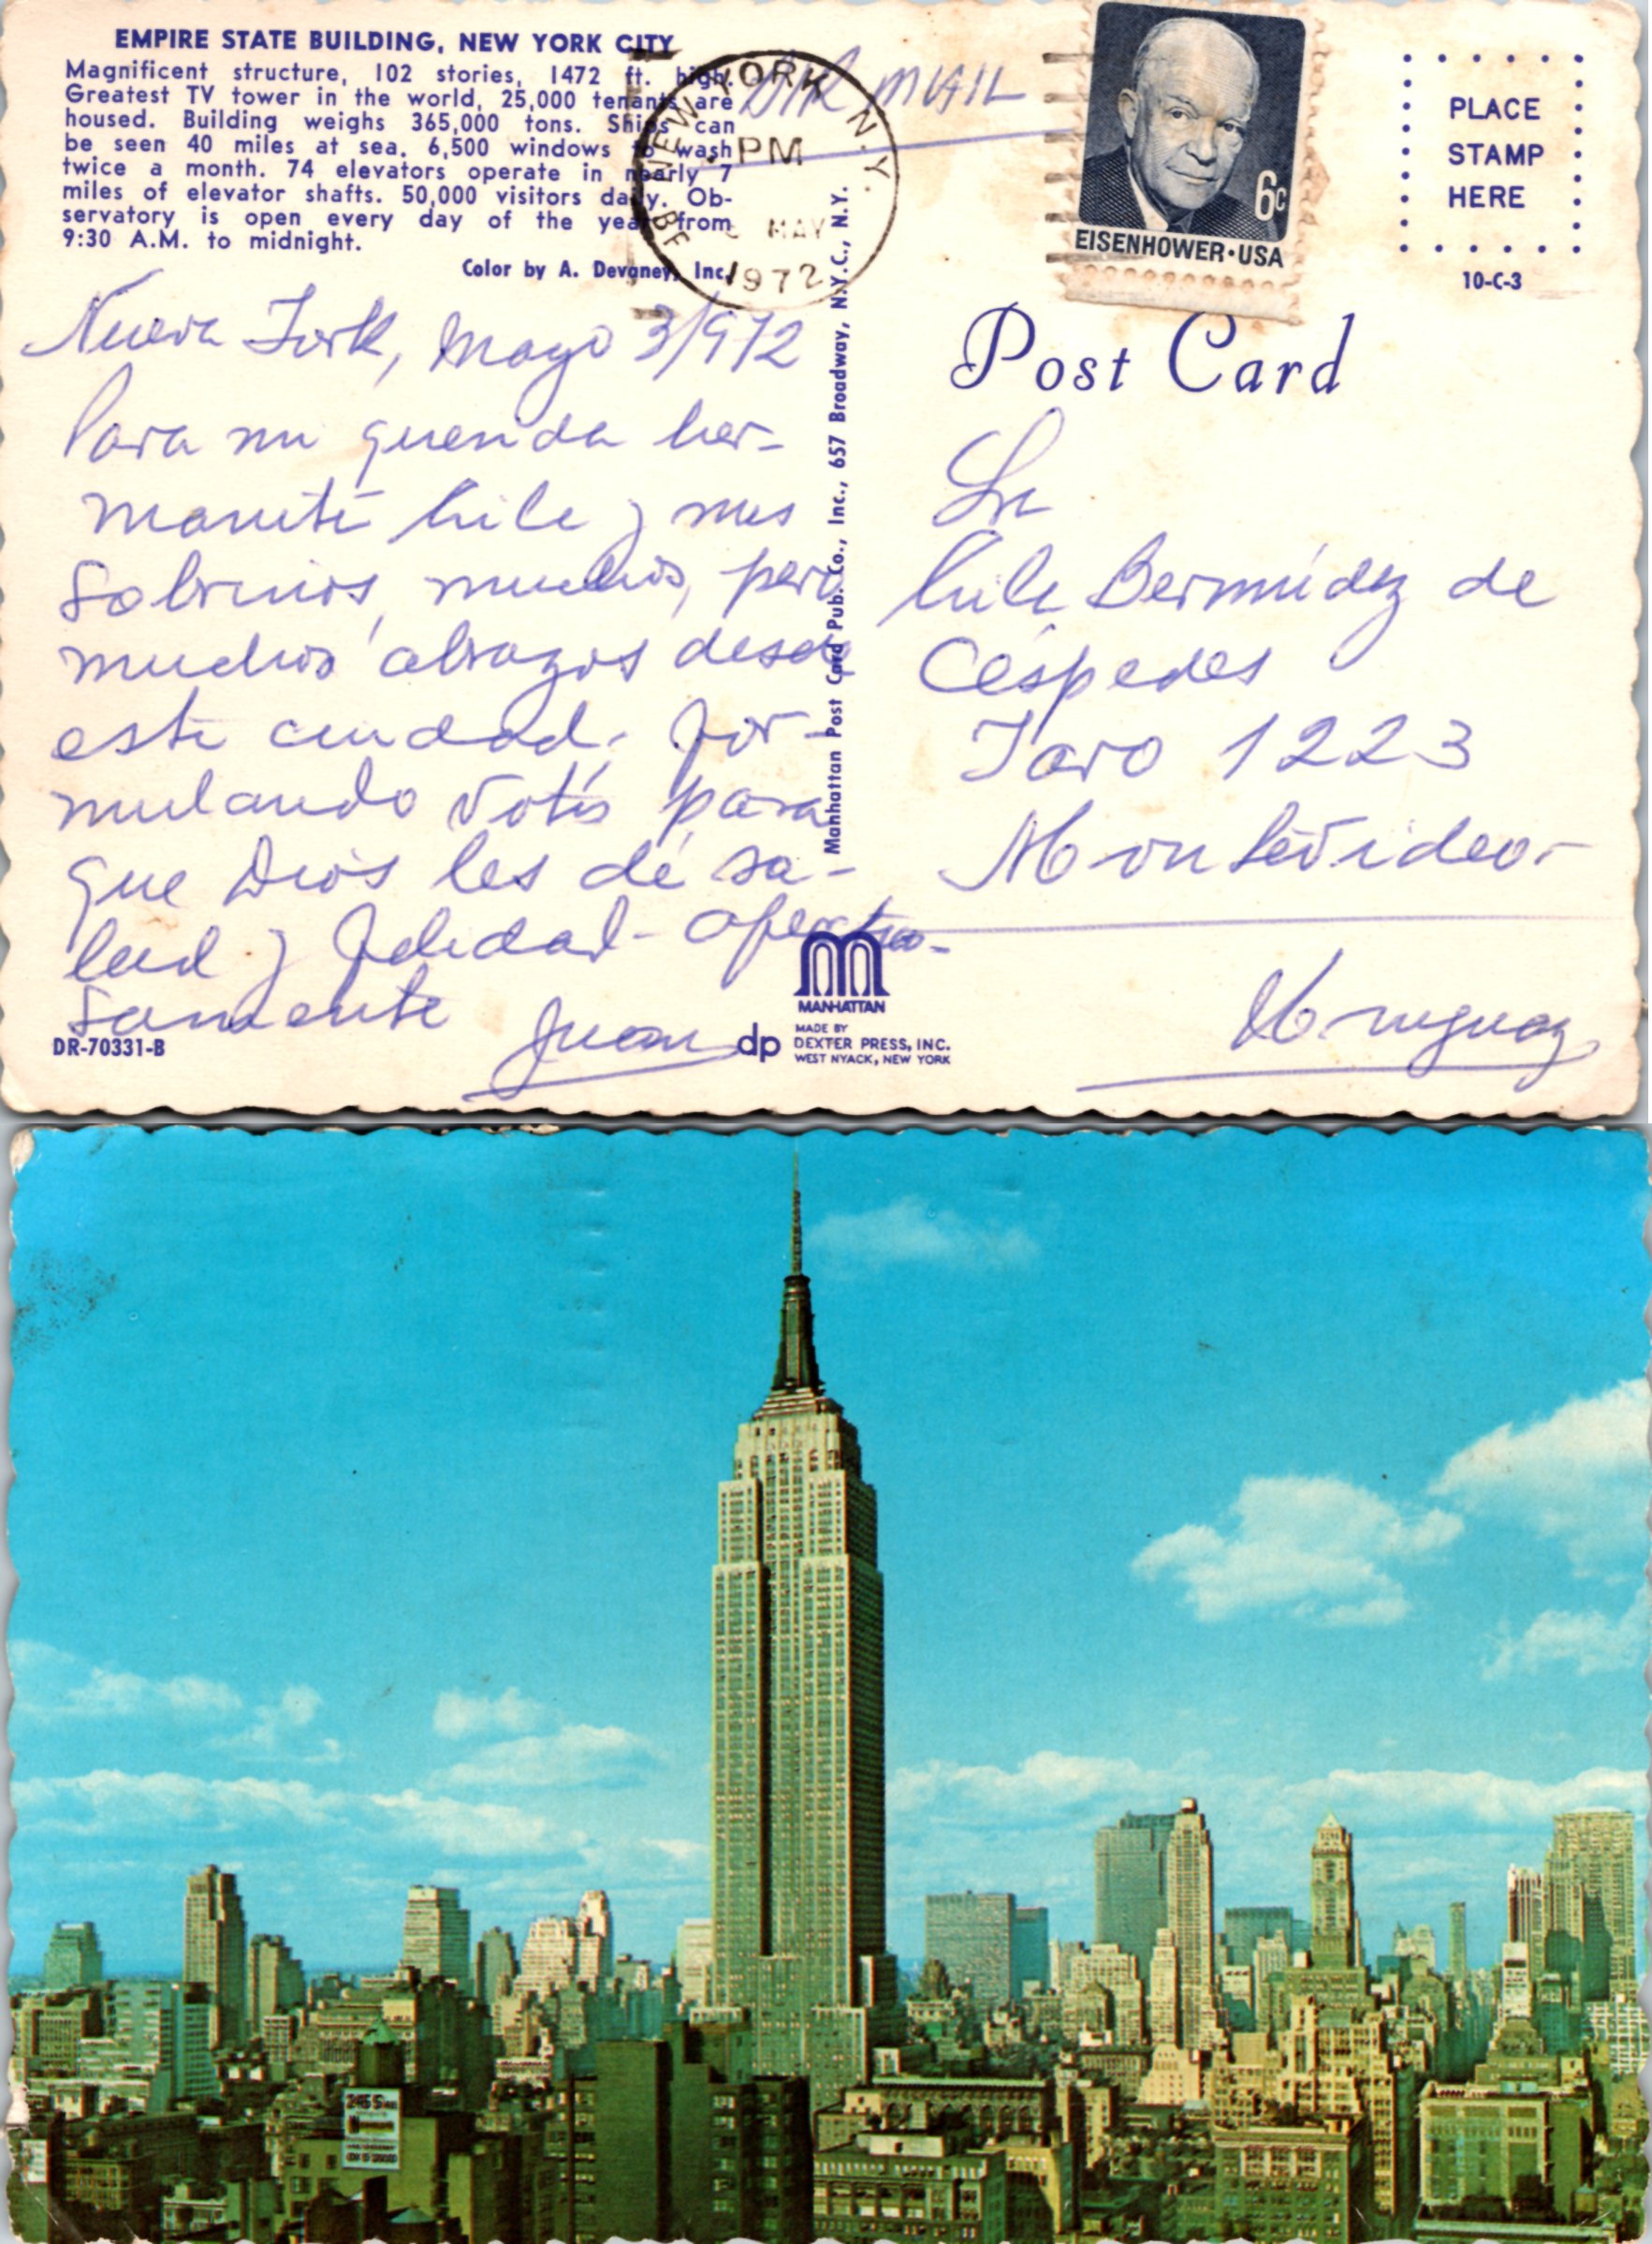 EMPIRE STATE BUILDING, NEW YORK CITY
Magnificent structure, 102 stories, 1472 ft. high.
Greatest TV tower in the world, 25,000 tenants are
housed. Building weighs 365,000 tons. Ships can
be seen 40 miles at sea. 6,500 windows to wash
twice a month. 74 elevators operate in nearly 7
miles of elevator shafts. 50,000 visitors daily. Ob-
servatory is open every day of the year from
9:30 A.M. to midnight.
Color by A. Devaney, Inc.
AIR MAIL
NEW YORK N.Y.
PM
MAY
1972
6c
EISENHOWER·USA
PLACE
STAMP
HERE
10-C-3
Post Card
Nueva York, Mayo 3/972
Para mi querida her-
manita y mis
sobrinos, muchos, pero
muchos abrazos desde
esta ciudad. For-
mulando votos para
que Dios les dé sa-
lud y felicidad - afectuo-
samente Juan
Manhattan Post Card Pub. Co., Inc., 657 Broadway, N.Y.C., N.Y.
Bermúdez de
Céspedes
1223
Montevideo.-
Uruguay
DR-70331-B
MANHATTAN
dp
MADE BY
DEXTER PRESS, INC.
WEST NYACK, NEW YORK